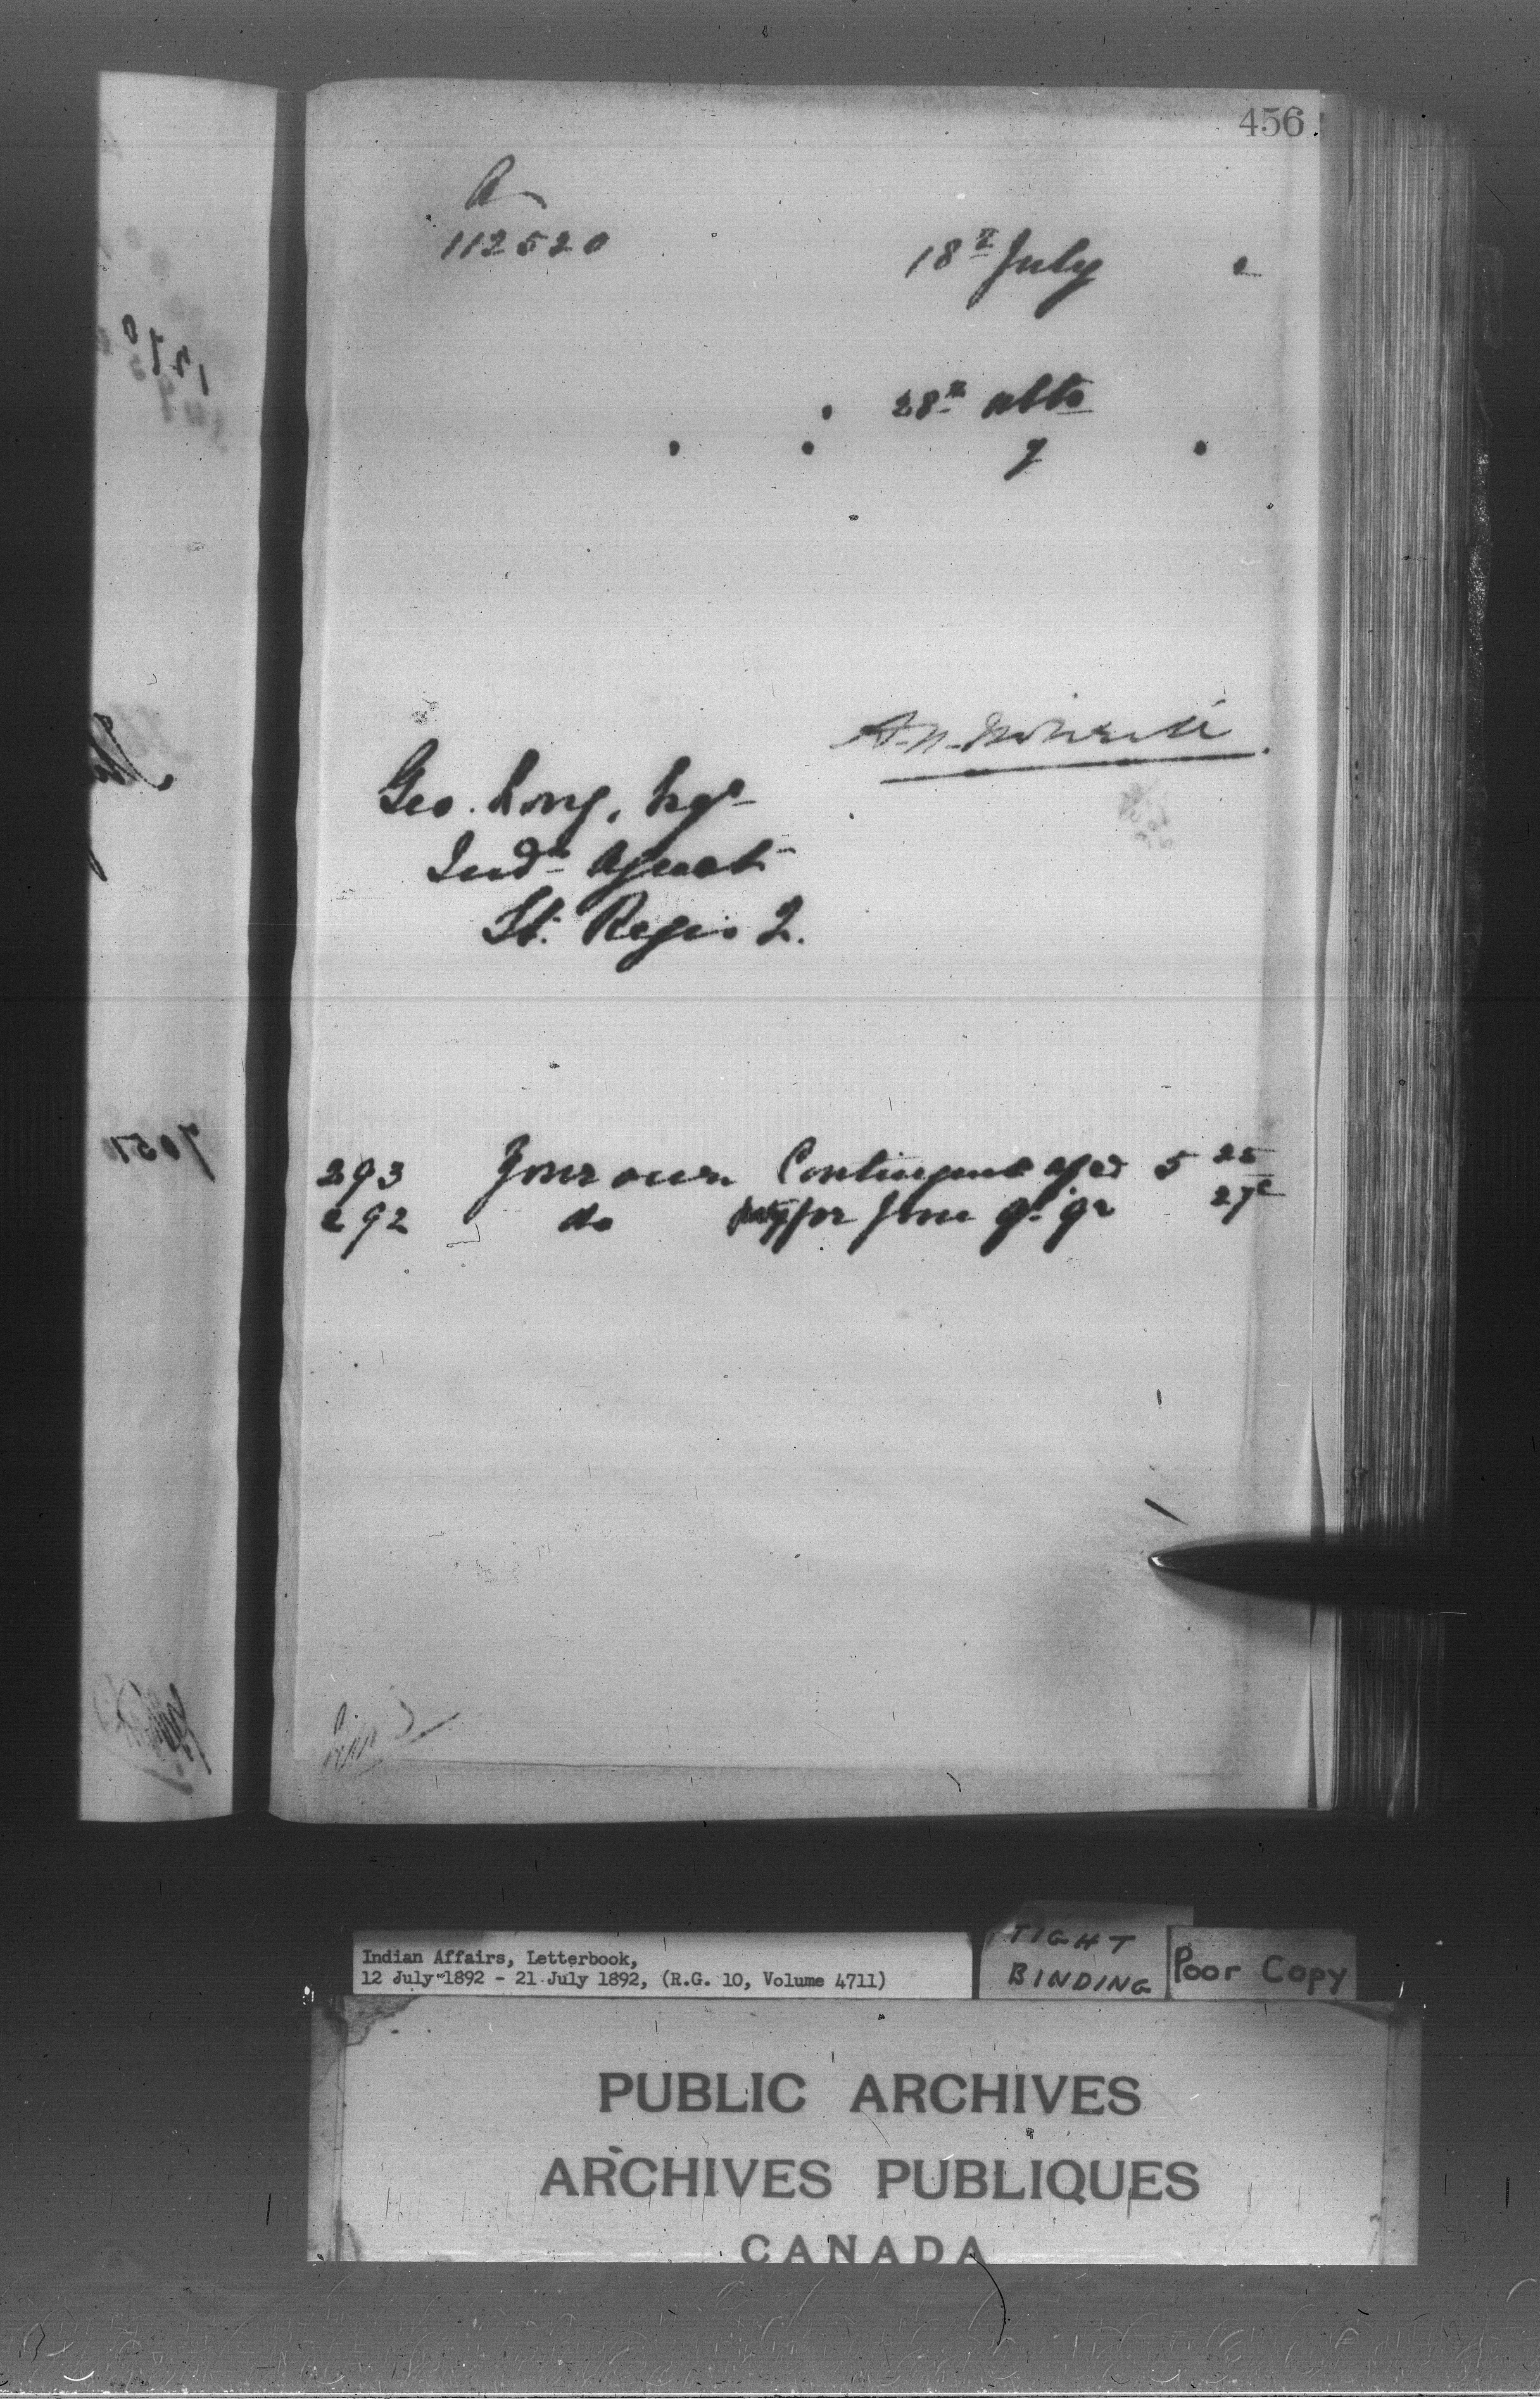 456
A
112520
18th July 2
28th ulto
7
Geo. Long, Esqr
Indn Agent
St. Regis Q.
293 Your own Contingent a/c 5 25
292 do pay for June qr 27c
Indian Affairs, Letterbook,
12 July 1892 - 21 July 1892, (R.G. 10, Volume 4711)
TIGHT
BINDING
Poor Copy
PUBLIC ARCHIVES
ARCHIVES PUBLIQUES
CANADA